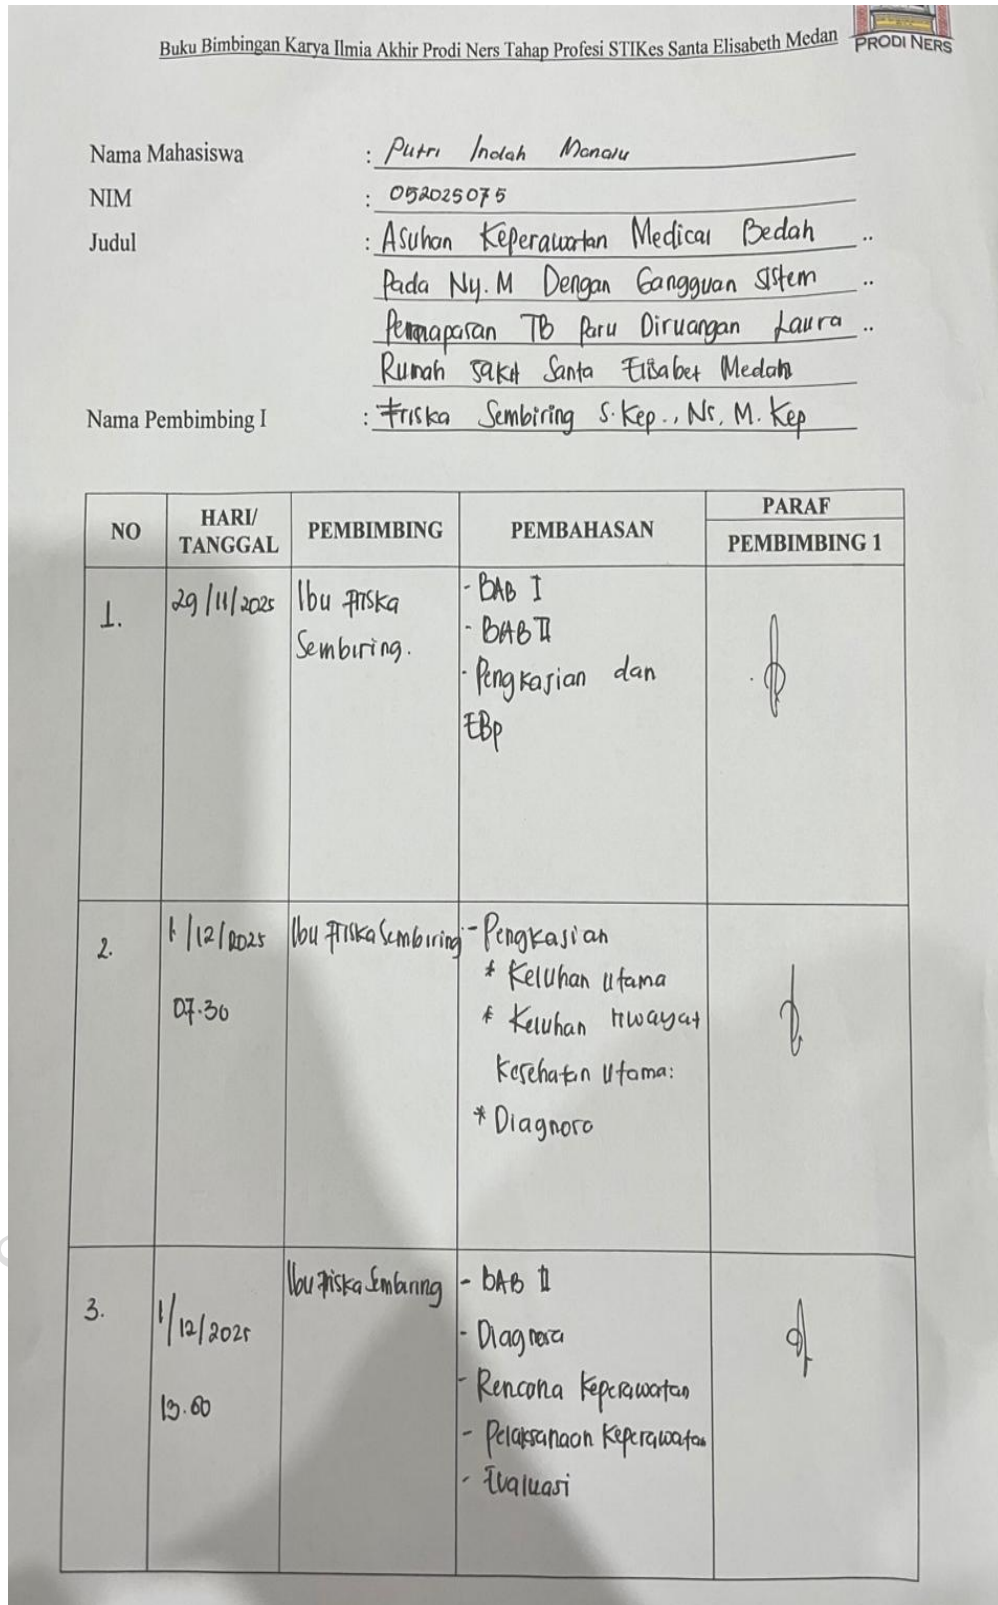 Buku Bimbingan Karya Ilmia Akhir Prodi Ners Tahap Profesi STIKes Santa Elisabeth Medan
PRODI NERS
Nama Mahasiswa : Putri Indah Manalu
NIM : 052025075
Judul : Asuhan Keperawatan Medical Bedah ..
Pada Ny. M Dengan Gangguan Sistem ..
Pernapasan TB Paru Diruangan Laura ..
Rumah Sakit Santa Elisabet Medan
Nama Pembimbing I : Friska Sembiring S.Kep., Ns, M. Kep
NO HARI/ TANGGAL PEMBIMBING PEMBAHASAN PARAF
PEMBIMBING 1
1. 29/11/2025 Ibu Friska - BAB I
Sembiring. - BAB II
- Pengkajian dan
EBp
2. 1/12/2025 Ibu Friska Sembiring - Pengkajian
* Keluhan utama
07.30 * Keluhan riwayat
kesehatan utama:
* Diagnosa
3. 1/12/2025 Ibu Friska Sembiring - BAB II
- Diagnosa
- Rencana Keperawatan
13.00 - Pelaksanaan Keperawatan
- Evaluasi